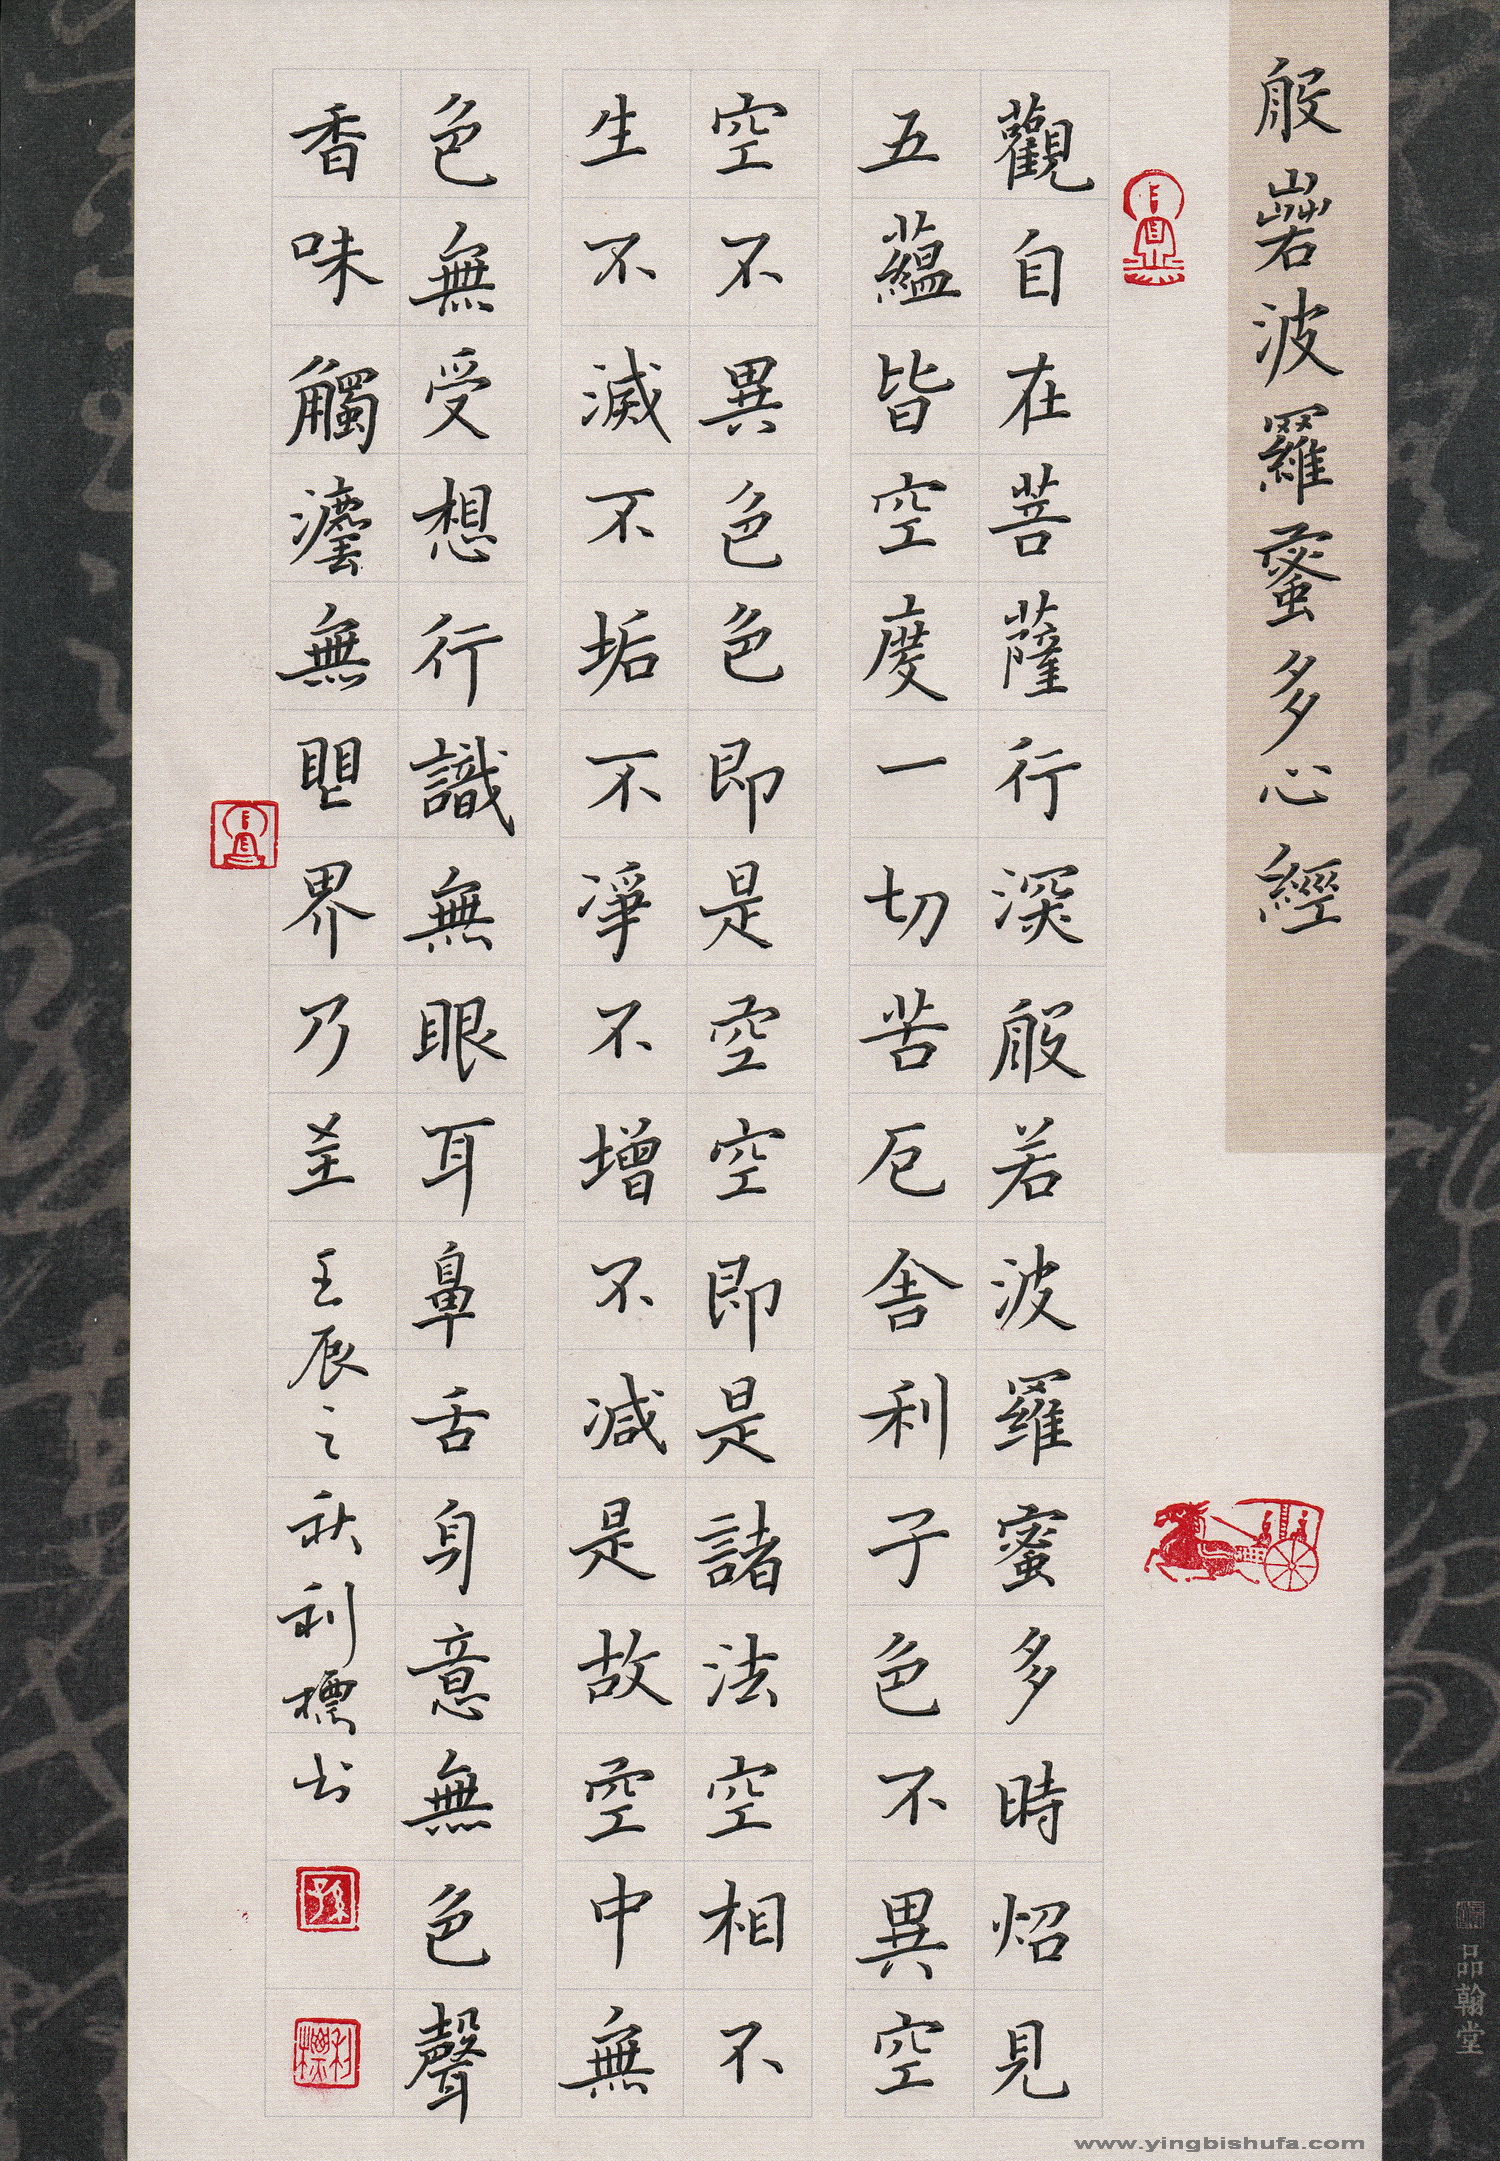 般若波羅蜜多心經
觀自在菩薩行深般若波羅蜜多時炤見
五蘊皆空度一切苦厄舍利子色不異空
空不異色色即是空空即是諸法空相不
生不滅不垢不凈不增不減是故空中無
色無受想行識無眼耳鼻舌身意無色聲
香味觸灋無眼界乃至 壬辰之秋利標书
孫
利標
品翰堂
www.yingbishufa.com